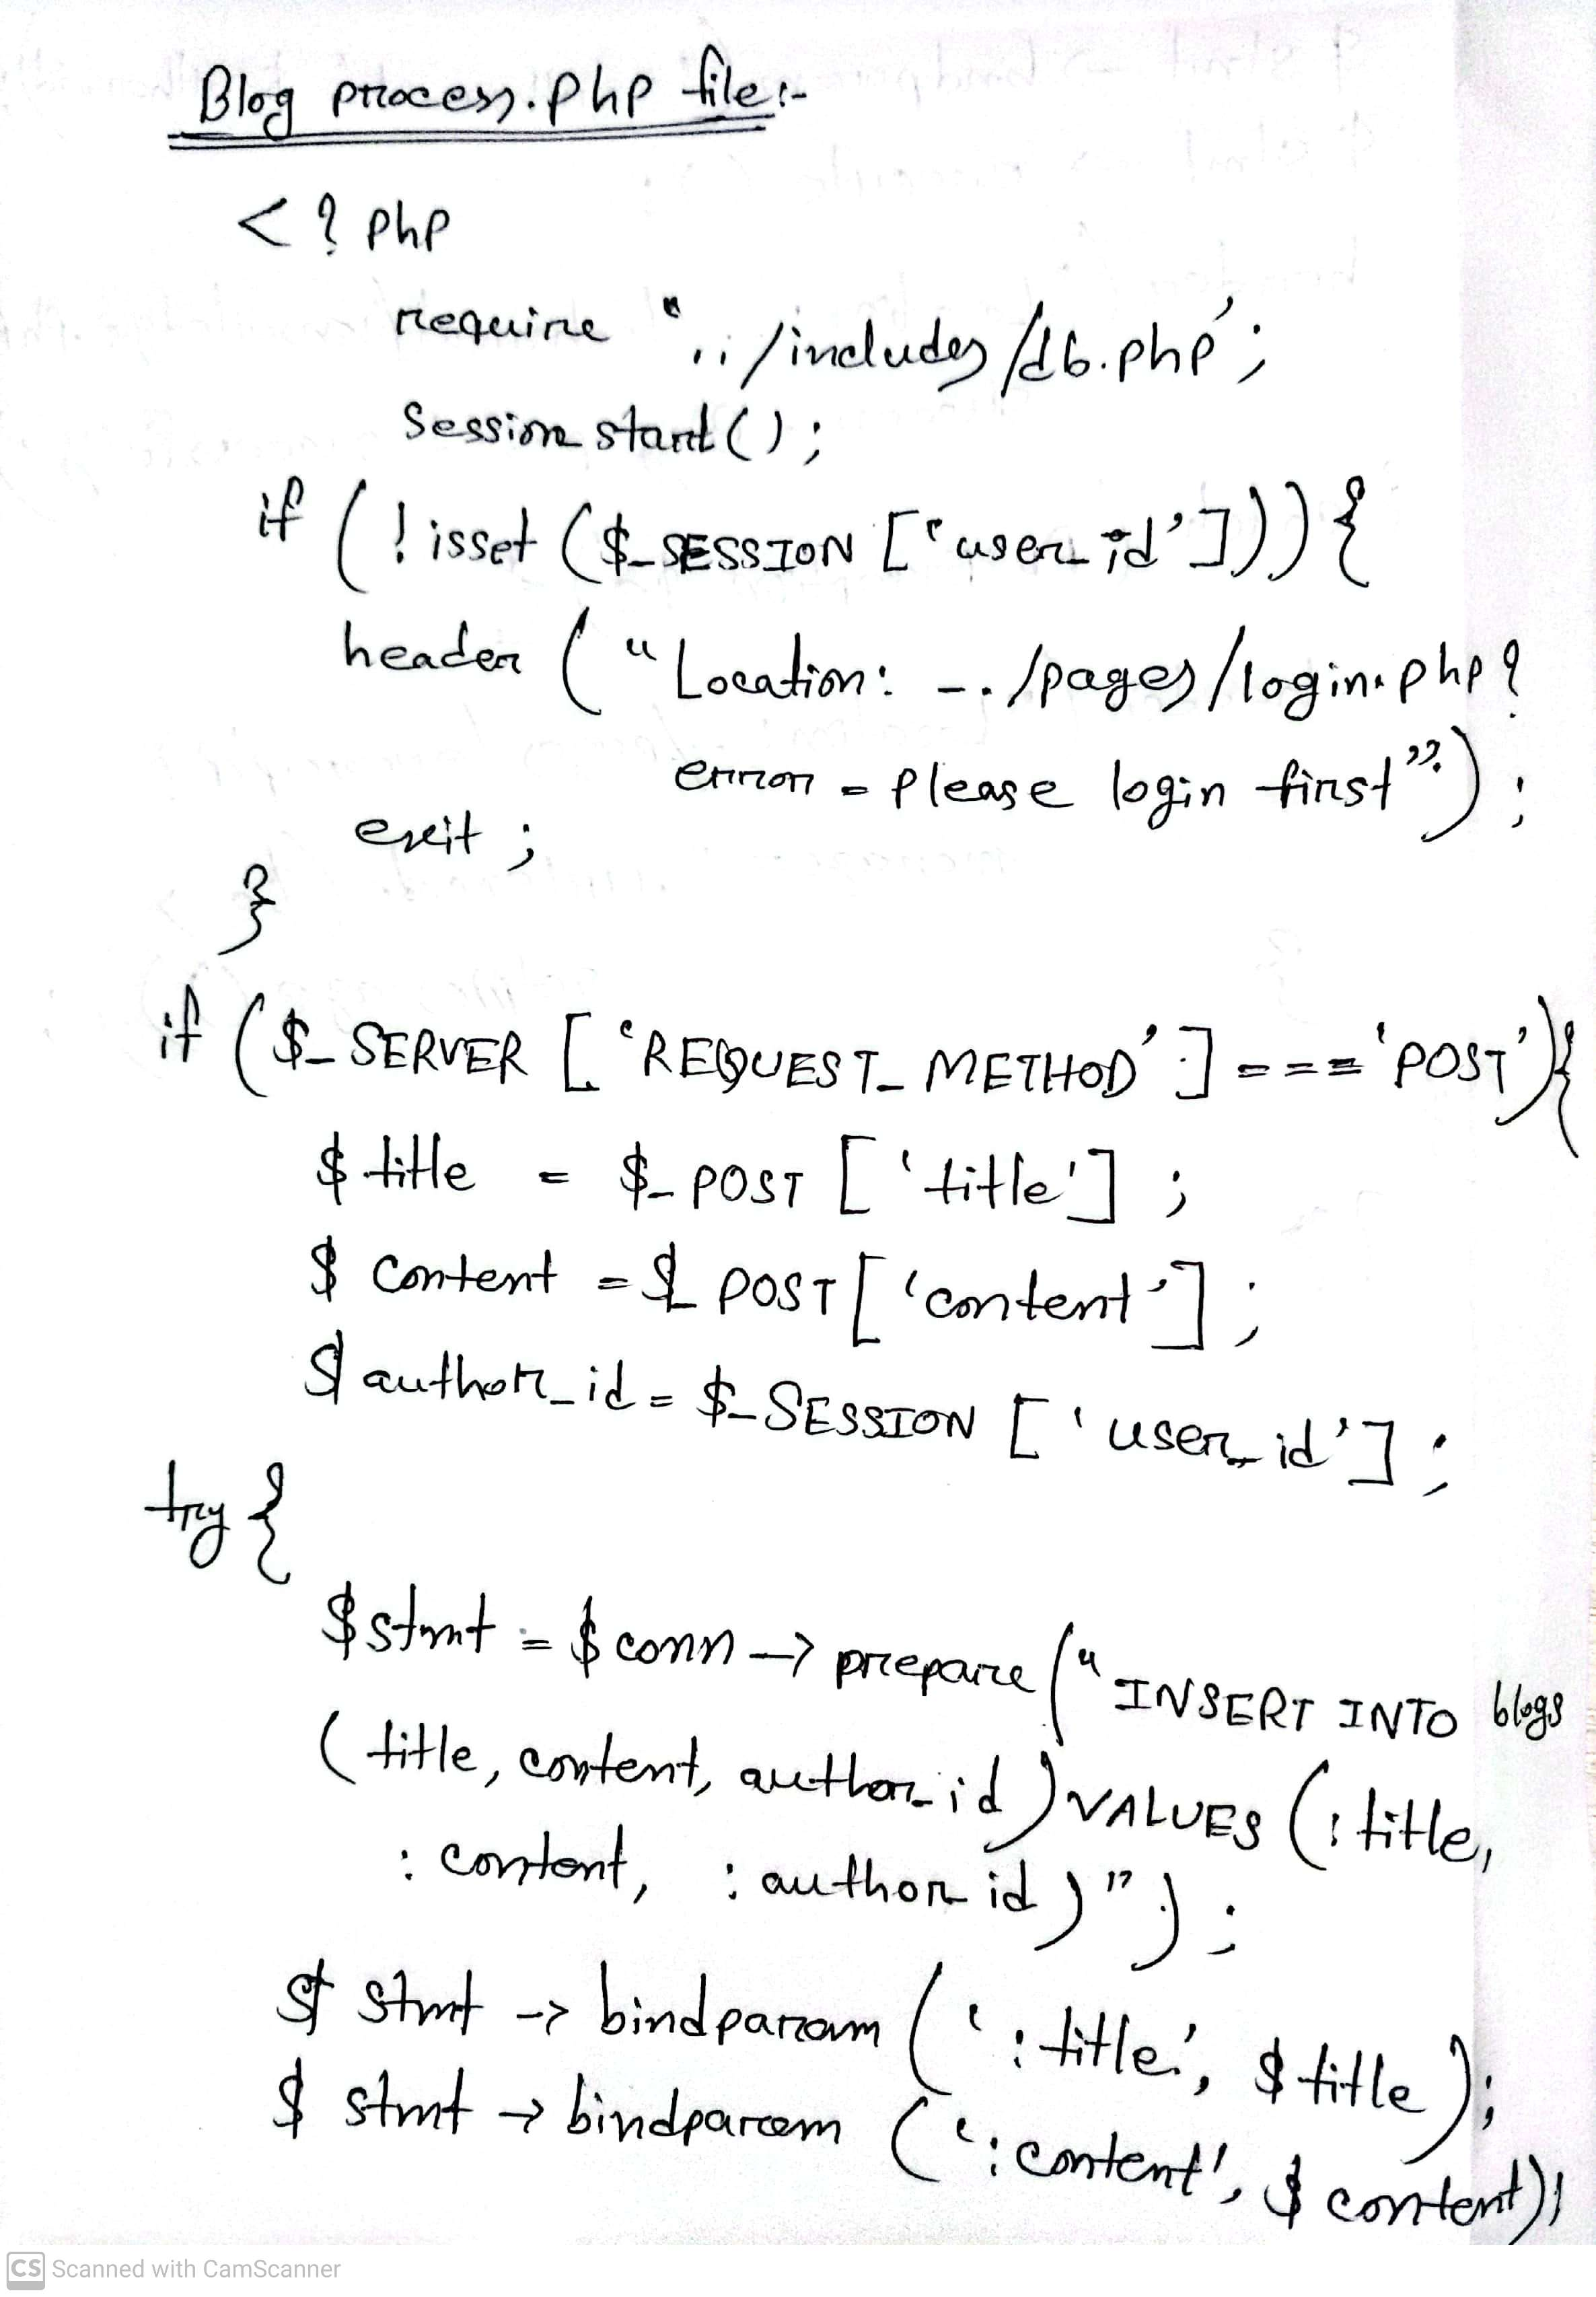 Blog process.php file:-
<? php
require "../includes/db.php';
Session start();
if (!isset ($_SESSION ['user_id'])){
header ("Location: -./pages/login.php?
error = Please login first");
exit ;
}
if ($_SERVER ['REQUEST_METHOD'] === 'POST'){
$ title = $_POST ['title'] ;
$ content = $_POST ['content'] ;
$ author_id = $_SESSION ['user_id'] ;
try {
$stmt = $conn -> prepare ("INSERT INTO blogs
(title, content, author_id) VALUES (:title,
: content, : author id)");
$ stmt -> bindparam (':title', $title);
$ stmt -> bindparam (':content', $content);
CS Scanned with CamScanner